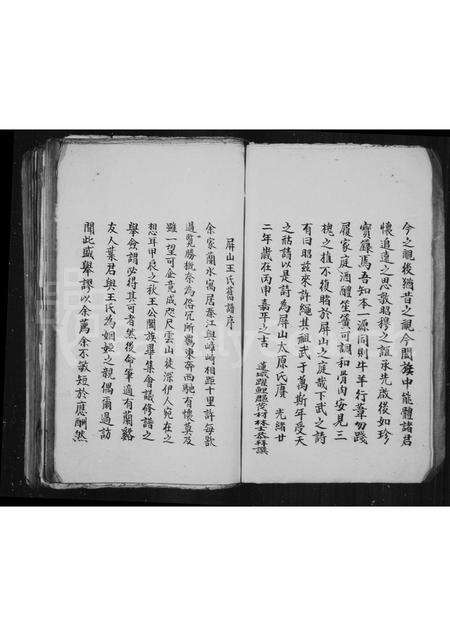 今之視後猶昔之視今闔族中能體諸君
懷追遠之思敬昭穆之誼承先啟後如珍
寶籙焉吾知本一源同則牛羊行葦勿踐
履家庭酒醴笙簧可調和骨肉安見三
槐之植不復睹於屏山之庭哉下武之詩
有曰昭茲來許繩其祖武于萬斯年受天
之祜請以是詩為屏山太原氏賡 光緒廿
二年歲在丙申嘉平之吉
屏山王氏舊譜序
余家蘭水寓居秦江與峰崎相距十里許每欲
遍覽勝概奈為俗冗所羈東奔西馳有懷莫及
雖一望可企竟成咫尺雲山徒深伊人宛在之
想耳甲辰之秋王公闔族畢集會議修譜之
舉僉謂必得其可者然後命筆適有蘭谿
友人葉君與王氏為姻婭之親偶爾過訪
聞此盛舉謬以余薦余不敏短於應酬然